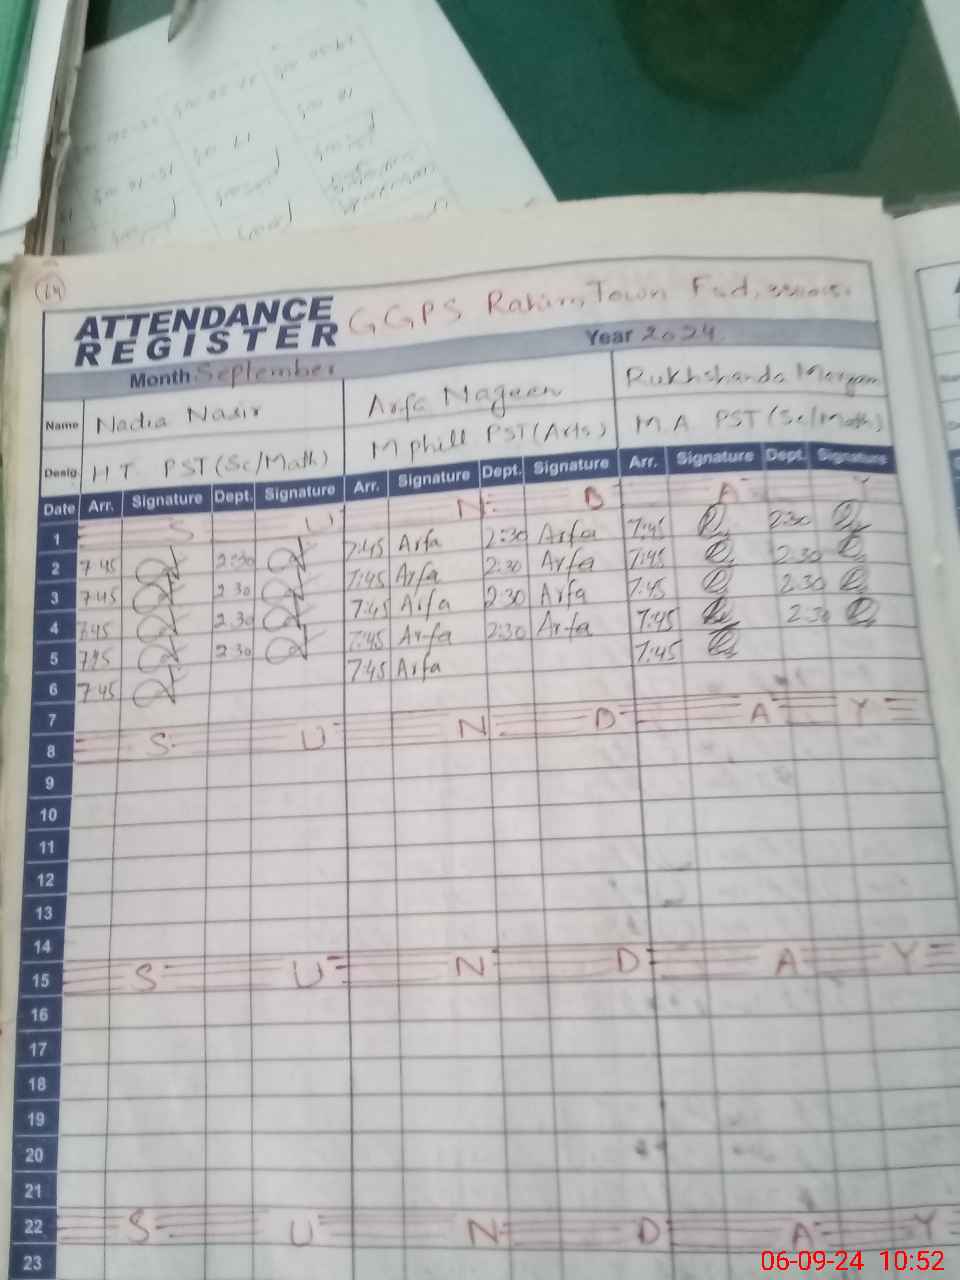 64
ATTENDANCE REGISTER GGPS Rahim Town Fsd,
Month September Year 2024
Name Nadia Nasir Arfa Nageen Rukhshanda Maryam
Desig. H T. PST (Sc/Math) M phill PST (Arts) M.A. PST (Sc/Math)
Date Arr. Signature Dept. Signature Arr. Signature Dept. Signature Arr. Signature Dept. Signature
1 S U N D A Y
2 7:45 2:30 7:45 Arfa 2:30 Arfa 7:45 2:30
3 7:45 2:30 7:45 Arfa 2:30 Arfa 7:45 2:30
4 7:45 2:30 7:45 Arfa 2:30 Arfa 7:45 2:30
5 7:45 2:30 7:45 Arfa 2:30 Arfa 7:45 2:30
6 7:45 7:45 Arfa 7:45
7
8 S U N D A Y
9
10
11
12
13
14
15 S U N D A Y
16
17
18
19
20
21
22 S U N D A Y
23
06-09-24 10:52